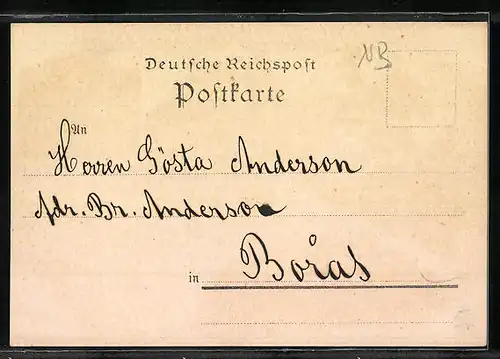 NB
Deutsche Reichspost
Postkarte
An
Herren Gösta Anderson
Adr. Br. Anderson
in Borås